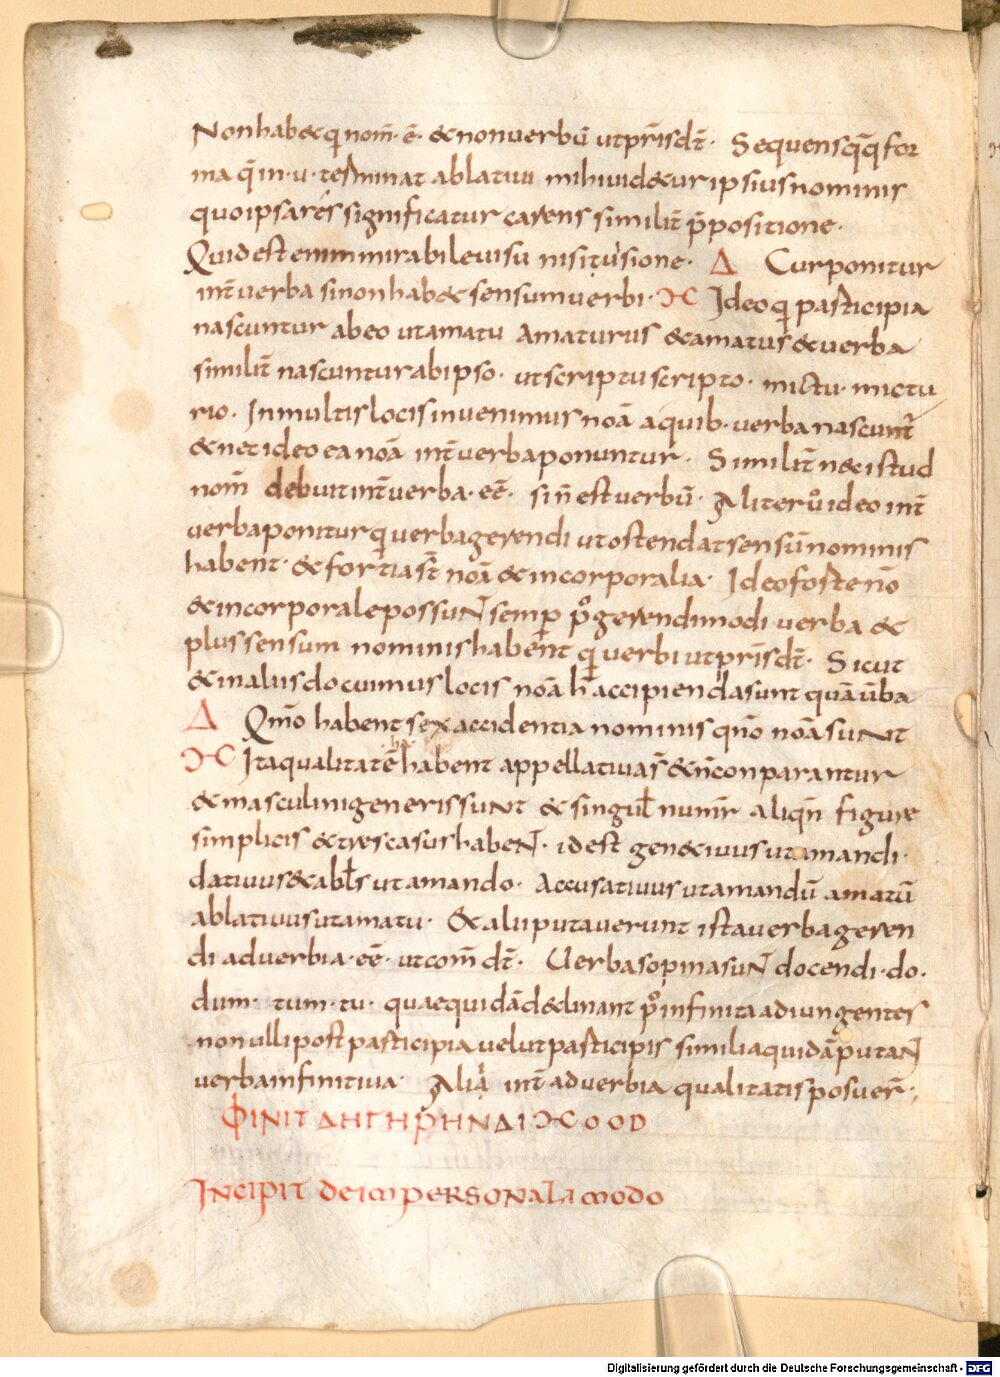 Non hab& q nom̄· ē· & non uerbū ut pris̄ dt̄· Sequens q̄q for
ma q̄ in·u·terminat ablatiui mihi uid&ur ipsius nominis
quo ipsa res significatur carens similit̄ p̄positione·
Quid est enim mirabile uisu nisi uisione· Δ Cur ponitur
int̄ uerba si non hab& sensum uerbi· ϽC Ideo q participia
nascuntur ab eo ut amatu amaturus & amatus & uerba
similit̄ nascuntur ab ipso· ut scriptu scripto· mictu· mictu
rio· In multis locis inuenimus noā a quib· uerba nascunt̄
& nec ideo ea noā int̄ uerba ponuntur· Similit̄ n& istud
nom̄ debuit int̄ uerba·eē· sin̄ est uerbū· Aliter uo ideo int̄
uerba ponitur q uerba gerendi ut ostendat sensū nominis
habent· & fortiast̄ noā & incorporalia· Ideo foste nō
& incorporale possuNt semp p̊ gerendi modi uerba &
plus sensum nominis habent q uerbi ut pris̄ dt̄· Sicut
& in aliis docuimus locis noā h̄ accipienda sunt quā ūba
Δ Qmō habent sex accidentia nominis qn̄o noā suNt
ϽC Ita qualitatē habent appellatiuas̄ & n̄ conparantur
& masculini generis suNt & singul̄ numr̄ aliqn̄ figure
simplicis & tres casus habeNt· id est gen&iuus ut amandi·
datiuus & abl̄s ut amando· Accusatiuus ut amandū amatū
ablatiuus ut amatu· & alii putauerunt ista uerba geren
di aduerbia·eē· ut com̄ dt̄· Uerba sopina suNt docendi·do·
dum· tum·tu· quae quidā d&clinant p̊ infinita adiungentes
non nulli post participia uelut participiis similia quidā putaNt
uerba infinitiua· Alii int̄ aduerbia qualitatis posuer̄·;
ΦINIT ΔΗΓΗΡΗΝΔΙ ϽCOOD
Incipit de impersonali modo
Digitalisierung gefördert durch die Deutsche Forschungsgemeinschaft - DFG